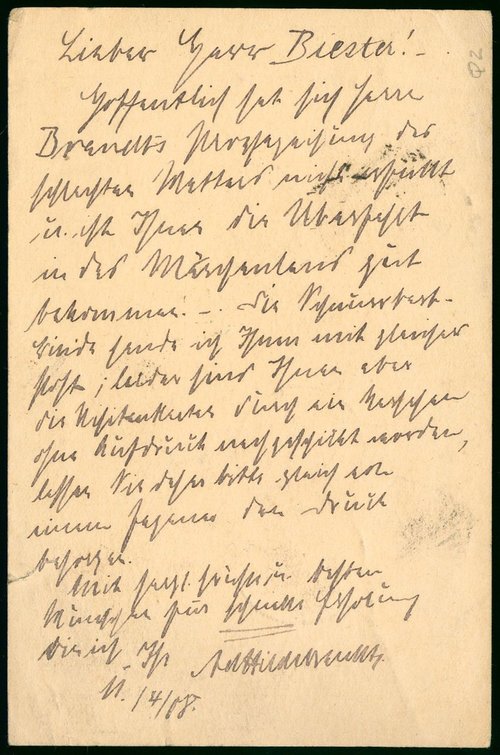 Lieber Herr Biester! –
Hoffentlich hat sich Herrn
Brandts Prophezeihung des
schlechten Wetters nicht erfüllt
u. ist Ihnen die Überfahrt
in das Märchenland gut
bekommen. – Die Schnurrbart-
binde sende ich Ihnen mit gleicher
Post; leider sind Ihnen aber
die Visitenkarten durch ein Versehen
ohne Aufdruck nachgeschickt worden,
lassen Sie daher bitte gleich
den Druck
besorgen.
Mit herzl. Grüßen u. besten
Wünschen für schnelle Erholung
bin ich Ihr
1/4/08.